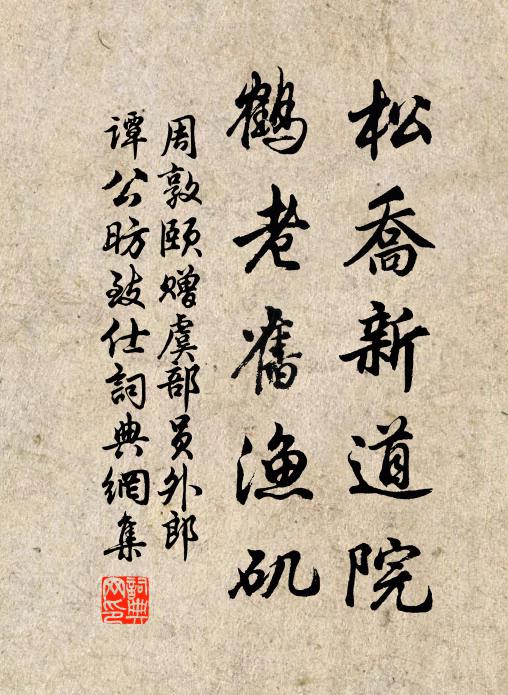 松喬新道院
鶴老舊漁矶
周敦颐赠虞部员外郎
谭公昉致仕詞典網集
詞典
网印